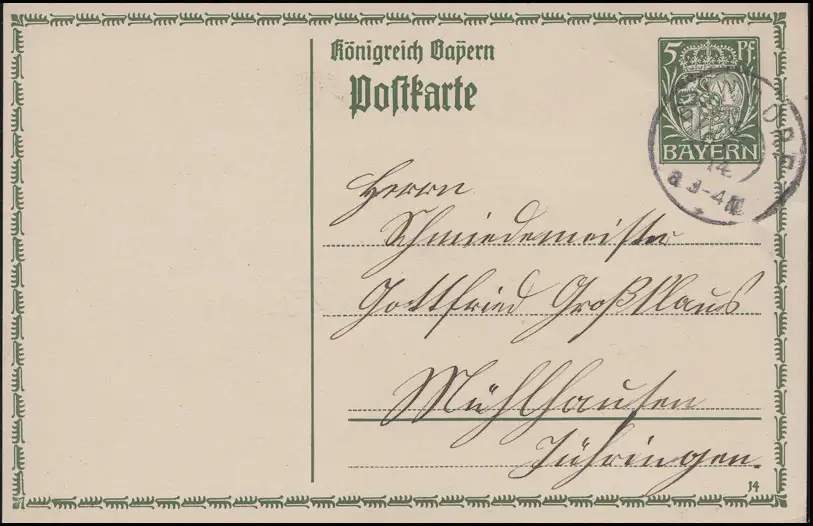 Königreich Bayern
Postkarte
5 Pf.
BAYERN
14
8 3-4 N
Herrn
Schmiedemeister
Gottfried Großklaus
Mühlhausen
Thüringen.
14